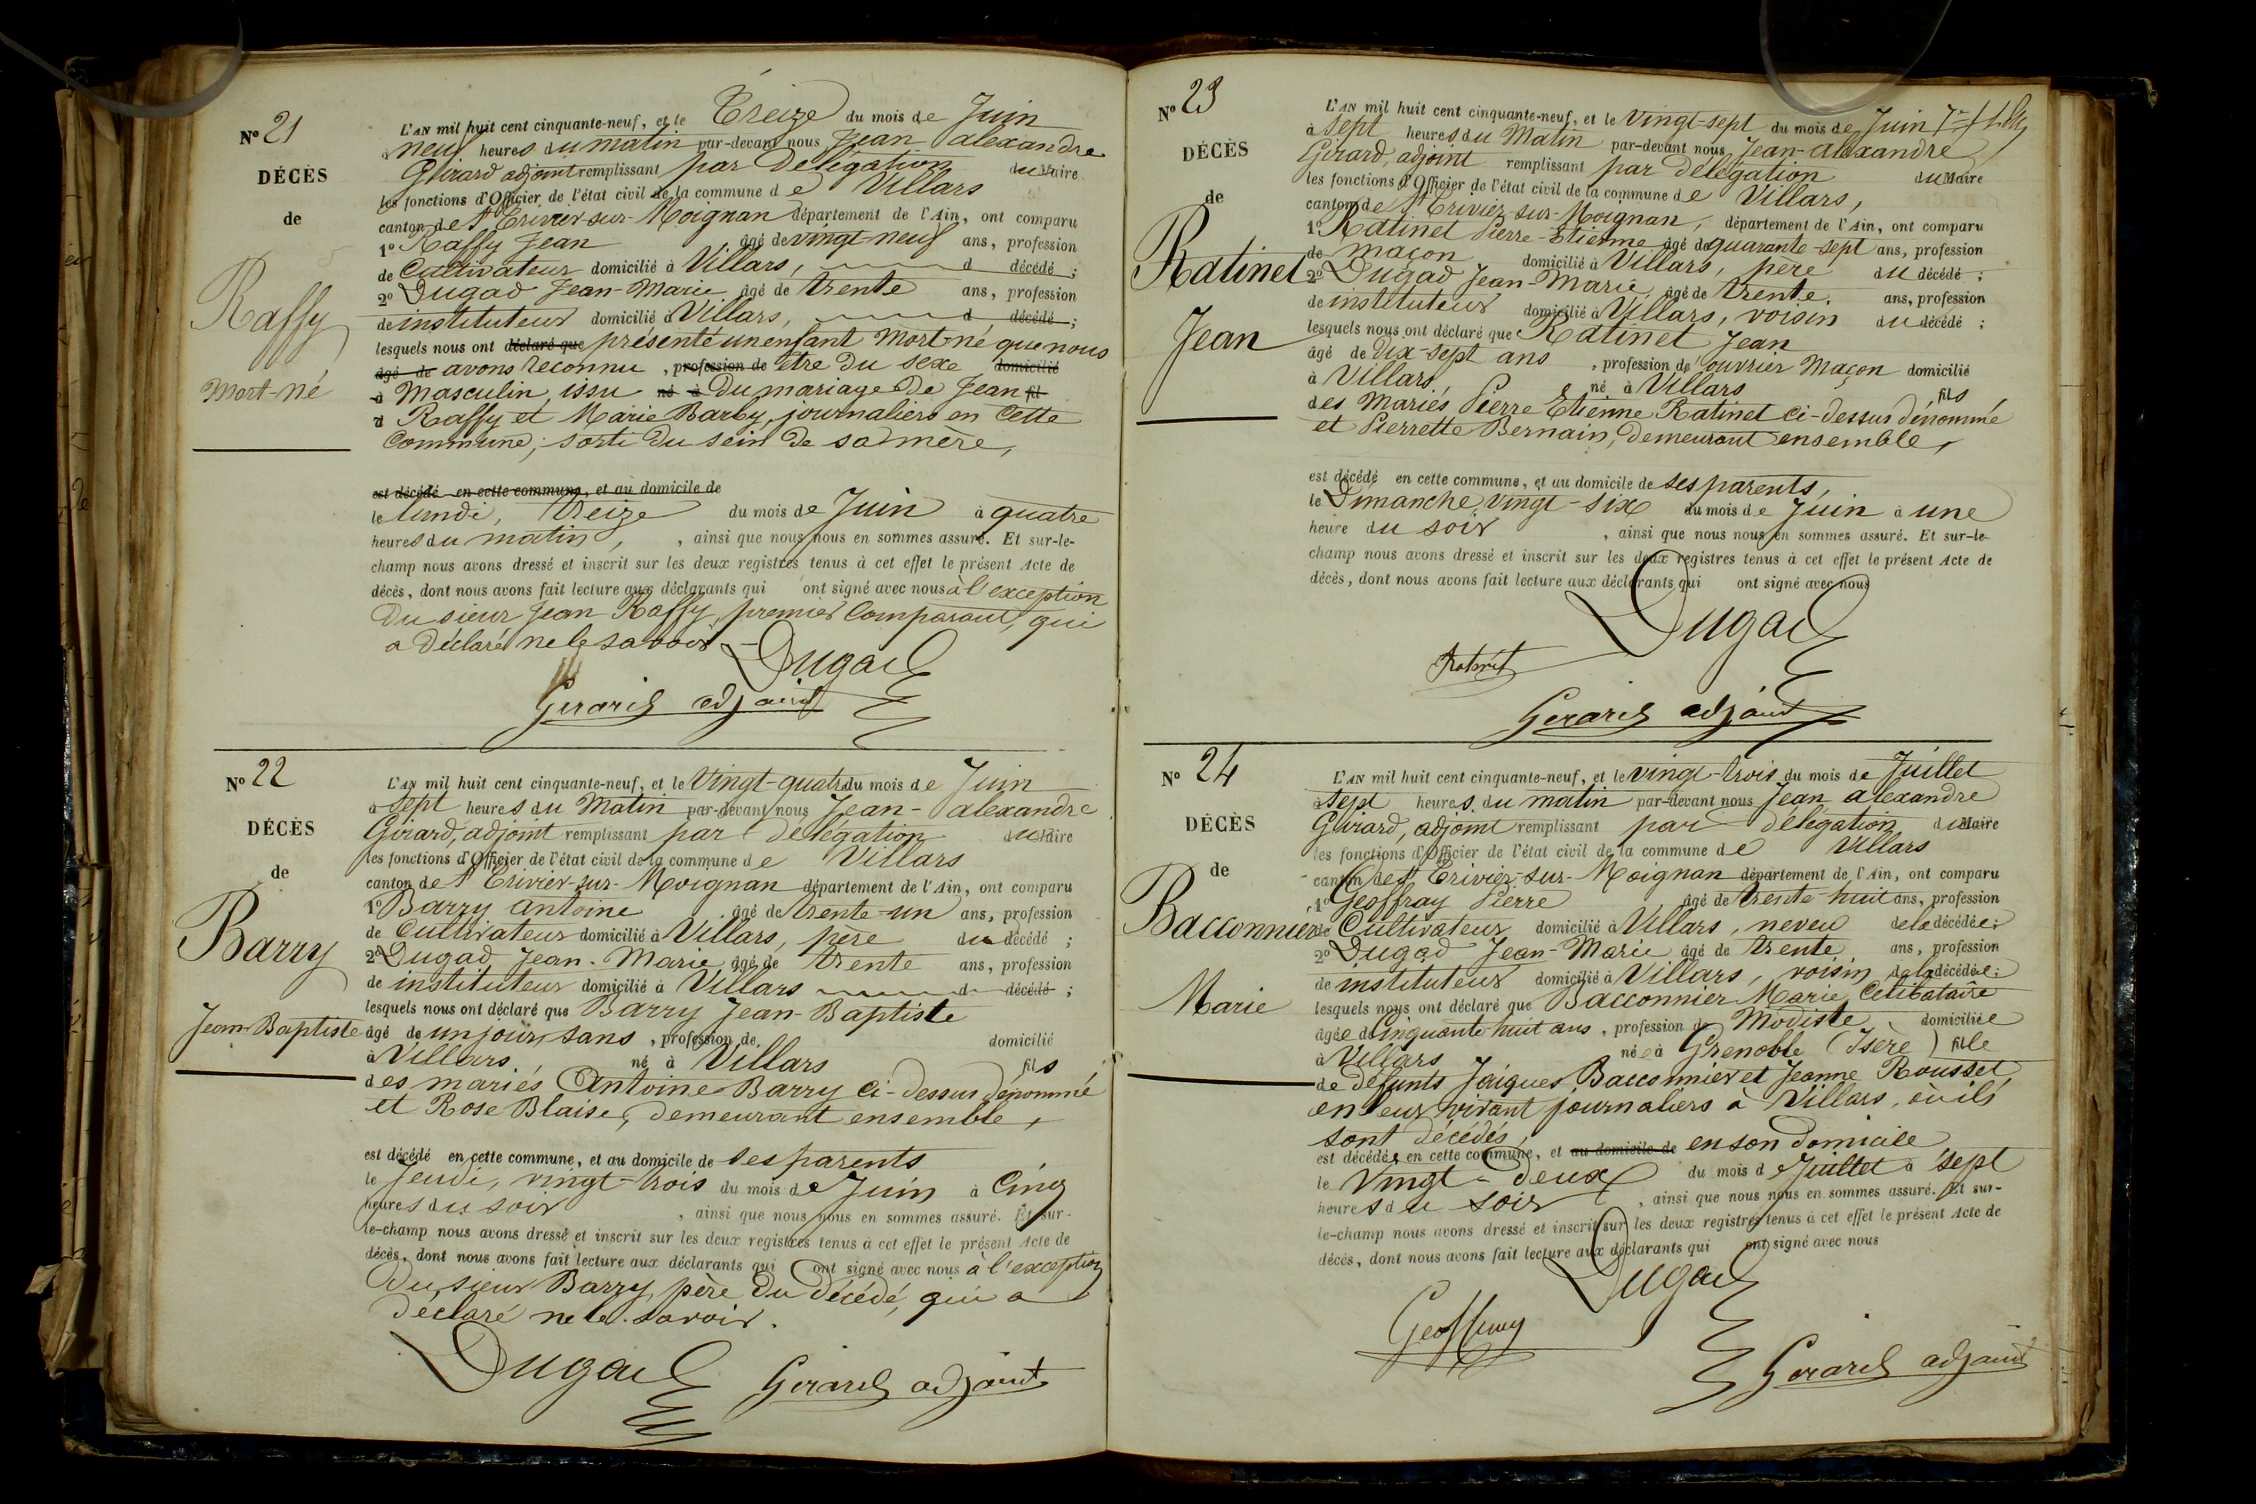 N° 21
DÉCÈS
de
Raffy
Mort-né
L'AN mil huit cent cinquante-neuf, et le Treize du mois de Juin
à neuf heures du matin par-devant nous Jean alexandre
Girard adjoint remplissant par Délégation du Maire
les fonctions d'Officier de l'état civil de la commune de Villars
canton de St Trivier-sur-Moignan département de l'Ain, ont comparu
1° Raffy Jean âgé de vingt-neuf ans, profession
de Cultivateur domicilié à Villars, d décédé ;
2° Dugad Jean-Marie âgé de trente ans, profession
de instituteur domicilié à Villars, d décédé ;
lesquels nous ont déclaré que présenté un enfant Mort-né que nous
âgé de avons reconnu , profession de être du sexe domicilié
à Masculin, issu né à du mariage de Jean fil
d Raffy et Marie Barby, journaliers en cette
Commune, sorti du sein de sa mère,
est décédé en cette commune, et au domicile de
le lundi, treize du mois de Juin à quatre
heures du matin, , ainsi que nous nous en sommes assuré. Et sur-le-
champ nous avons dressé et inscrit sur les deux registres tenus à cet effet le présent Acte de
décès, dont nous avons fait lecture aux déclarants qui ont signé avec nous à l'exception
du sieur Jean Raffy, premier Comparant, qui
a déclaré ne le savoir
Dugad
Girard adjoint
N° 22
DÉCÈS
de
Barry
Jean-Baptiste
L'AN mil huit cent cinquante-neuf, et le Vingt-quatre du mois de Juin
à sept heures du Matin par-devant nous Jean-alexandre
Girard, adjoint remplissant par délégation du Maire
les fonctions d'Officier de l'état civil de la commune de Villars
canton de St Trivier-sur-Moignan département de l'Ain, ont comparu
1° Barry antoine âgé de trente-un ans, profession
de Cultivateur domicilié à Villars, père du décédé ;
2° Dugad Jean-Marie âgé de trente ans, profession
de instituteur domicilié à Villars d décédé ;
lesquels nous ont déclaré que Barry Jean-Baptiste
âgé de un jour, sans , profession de domicilié
à Villars né à Villars fils
des mariés Antoine Barry ci-dessus dénommé
et Rose Blaise, demeurant ensemble,
est décédé en cette commune, et au domicile de ses parents
le Jeudi, vingt-trois du mois de Juin à Cinq
heures du soir , ainsi que nous nous en sommes assuré. Et sur-
le-champ nous avons dressé et inscrit sur les deux registres tenus à cet effet le présent Acte de
décès, dont nous avons fait lecture aux déclarants qui ont signé avec nous à l'exception
Du sieur Barry, père du décédé, qui a
déclaré ne le savoir.
Dugad
Girard adjoint
N° 23
DÉCÈS
de
Ratinet
Jean
L'AN mil huit cent cinquante-neuf, et le Vingt-sept du mois de Juin
à sept heures du Matin par-devant nous Jean-alexandre
Girard, adjoint remplissant par délégation du Maire
les fonctions d'Officier de l'état civil de la commune de Villars,
canton de St Trivier-sur-Moignan, département de l'Ain, ont comparu
1° Ratinet Pierre-Etienne âgé de quarante-sept ans, profession
de maçon domicilié à Villars, père du décédé ;
2° Dugad Jean-Marie, âgé de trente. ans, profession
de instituteur domicilié à Villars, voisin du décédé ;
lesquels nous ont déclaré que Ratinet Jean
âgé de Dix-sept ans , profession de ouvrier Maçon domicilié
à Villars, né à Villars fils
des Mariés Pierre Etienne Ratinet ci-dessus dénommé
et Pierrette Bernain, demeurant ensemble,
est décédé en cette commune, et au domicile de ses parents,
le Dimanche vingt-six du mois de Juin à une
heure du soir , ainsi que nous nous en sommes assuré. Et sur-le-
champ nous avons dressé et inscrit sur les deux registres tenus à cet effet le présent Acte de
décès, dont nous avons fait lecture aux déclarants qui ont signé avec nous
Dugad
Girard adjoint
N° 24
DÉCÈS
de
Bacconnier
Marie
L'AN mil huit cent cinquante-neuf, et le vingt-trois du mois de Juillet
à sept heures du matin par-devant nous Jean alexandre
Girard, adjoint remplissant par délégation du Maire
les fonctions d'Officier de l'état civil de la commune de Villars
canton de St Trivier-sur-Moignan département de l'Ain, ont comparu
1° Geoffray Pierre âgé de trente-huit ans, profession
de Cultivateur domicilié à Villars, neveu de la décédée ;
2° Dugad Jean-Marie âgé de trente ans, profession
de instituteur domicilié à Villars, voisin de la décédée ;
lesquels nous ont déclaré que Bacconnier Marie, Célibataire
âgée de Cinquante huit ans , profession de Modiste domiciliée
à Villars née à Grenoble (Isère) fille
de défunts Jaiques Bacconnier et Jeanne Rousset,
en leur vivant journaliers à Villars, où ils
sont décédés,
est décédée en cette commune, et au domicile de en son domicile
le Vingt-deux du mois de Juillet à sept
heures du soir , ainsi que nous nous en sommes assuré. Et sur-
le-champ nous avons dressé et inscrit sur les deux registres tenus à cet effet le présent Acte de
décès, dont nous avons fait lecture aux déclarants qui ont signé avec nous
Dugad
Geoffray
Girard adjoint